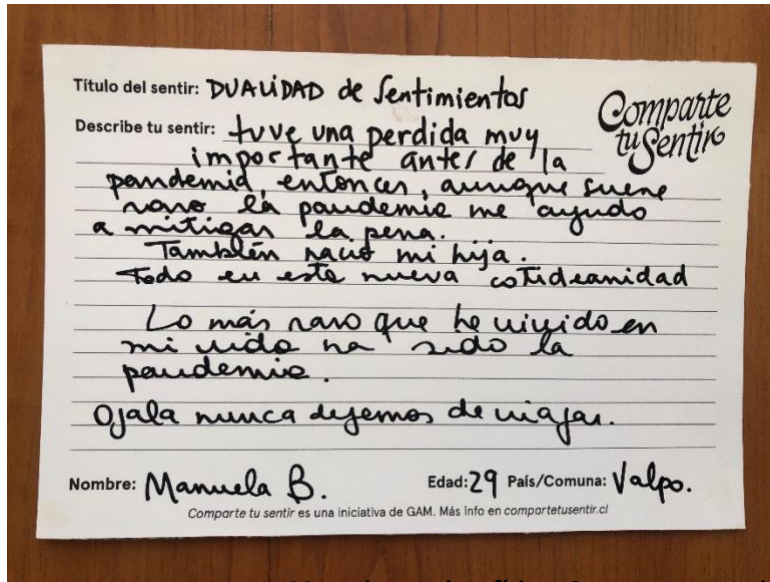 Título del sentir: DUALIDAD de Sentimientos
Comparte tu Sentir
Describe tu sentir: tuve una perdida muy
importante antes de la
pandemia, entonces, aunque suene
raro la pandemia me ayudo
a mitigar la pena.
También nació mi hija.
Todo en esta nueva cotideanidad
Lo más raro que he vivido en
mi vida ha sido la
pandemia.
Ojala nunca dejemos de viajar.
Nombre: Manuela B. Edad: 29 País/Comuna: Valpo.
Comparte tu sentir es una iniciativa de GAM. Más info en compartetusentir.cl